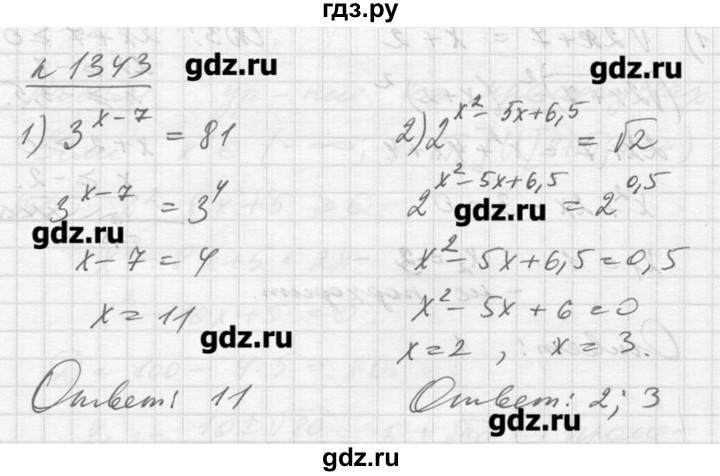 гдз.ру
n 1343
gdz.ru
gdz.ru
1) 3^{x-7} = 81
3^{x-7} = 3^4
gdz.ru
x - 7 = 4
x = 11
gdz.ru
Ответ: 11
2) 2^{x^2 - 5x + 6,5} = √2
2^{x^2 - 5x + 6,5} = 2^{0,5}
gdz.ru
x^2 - 5x + 6,5 = 0,5
x^2 - 5x + 6 = 0
x = 2 , x = 3.
Ответ: 2; 3
gdz.ru
гдз.ру